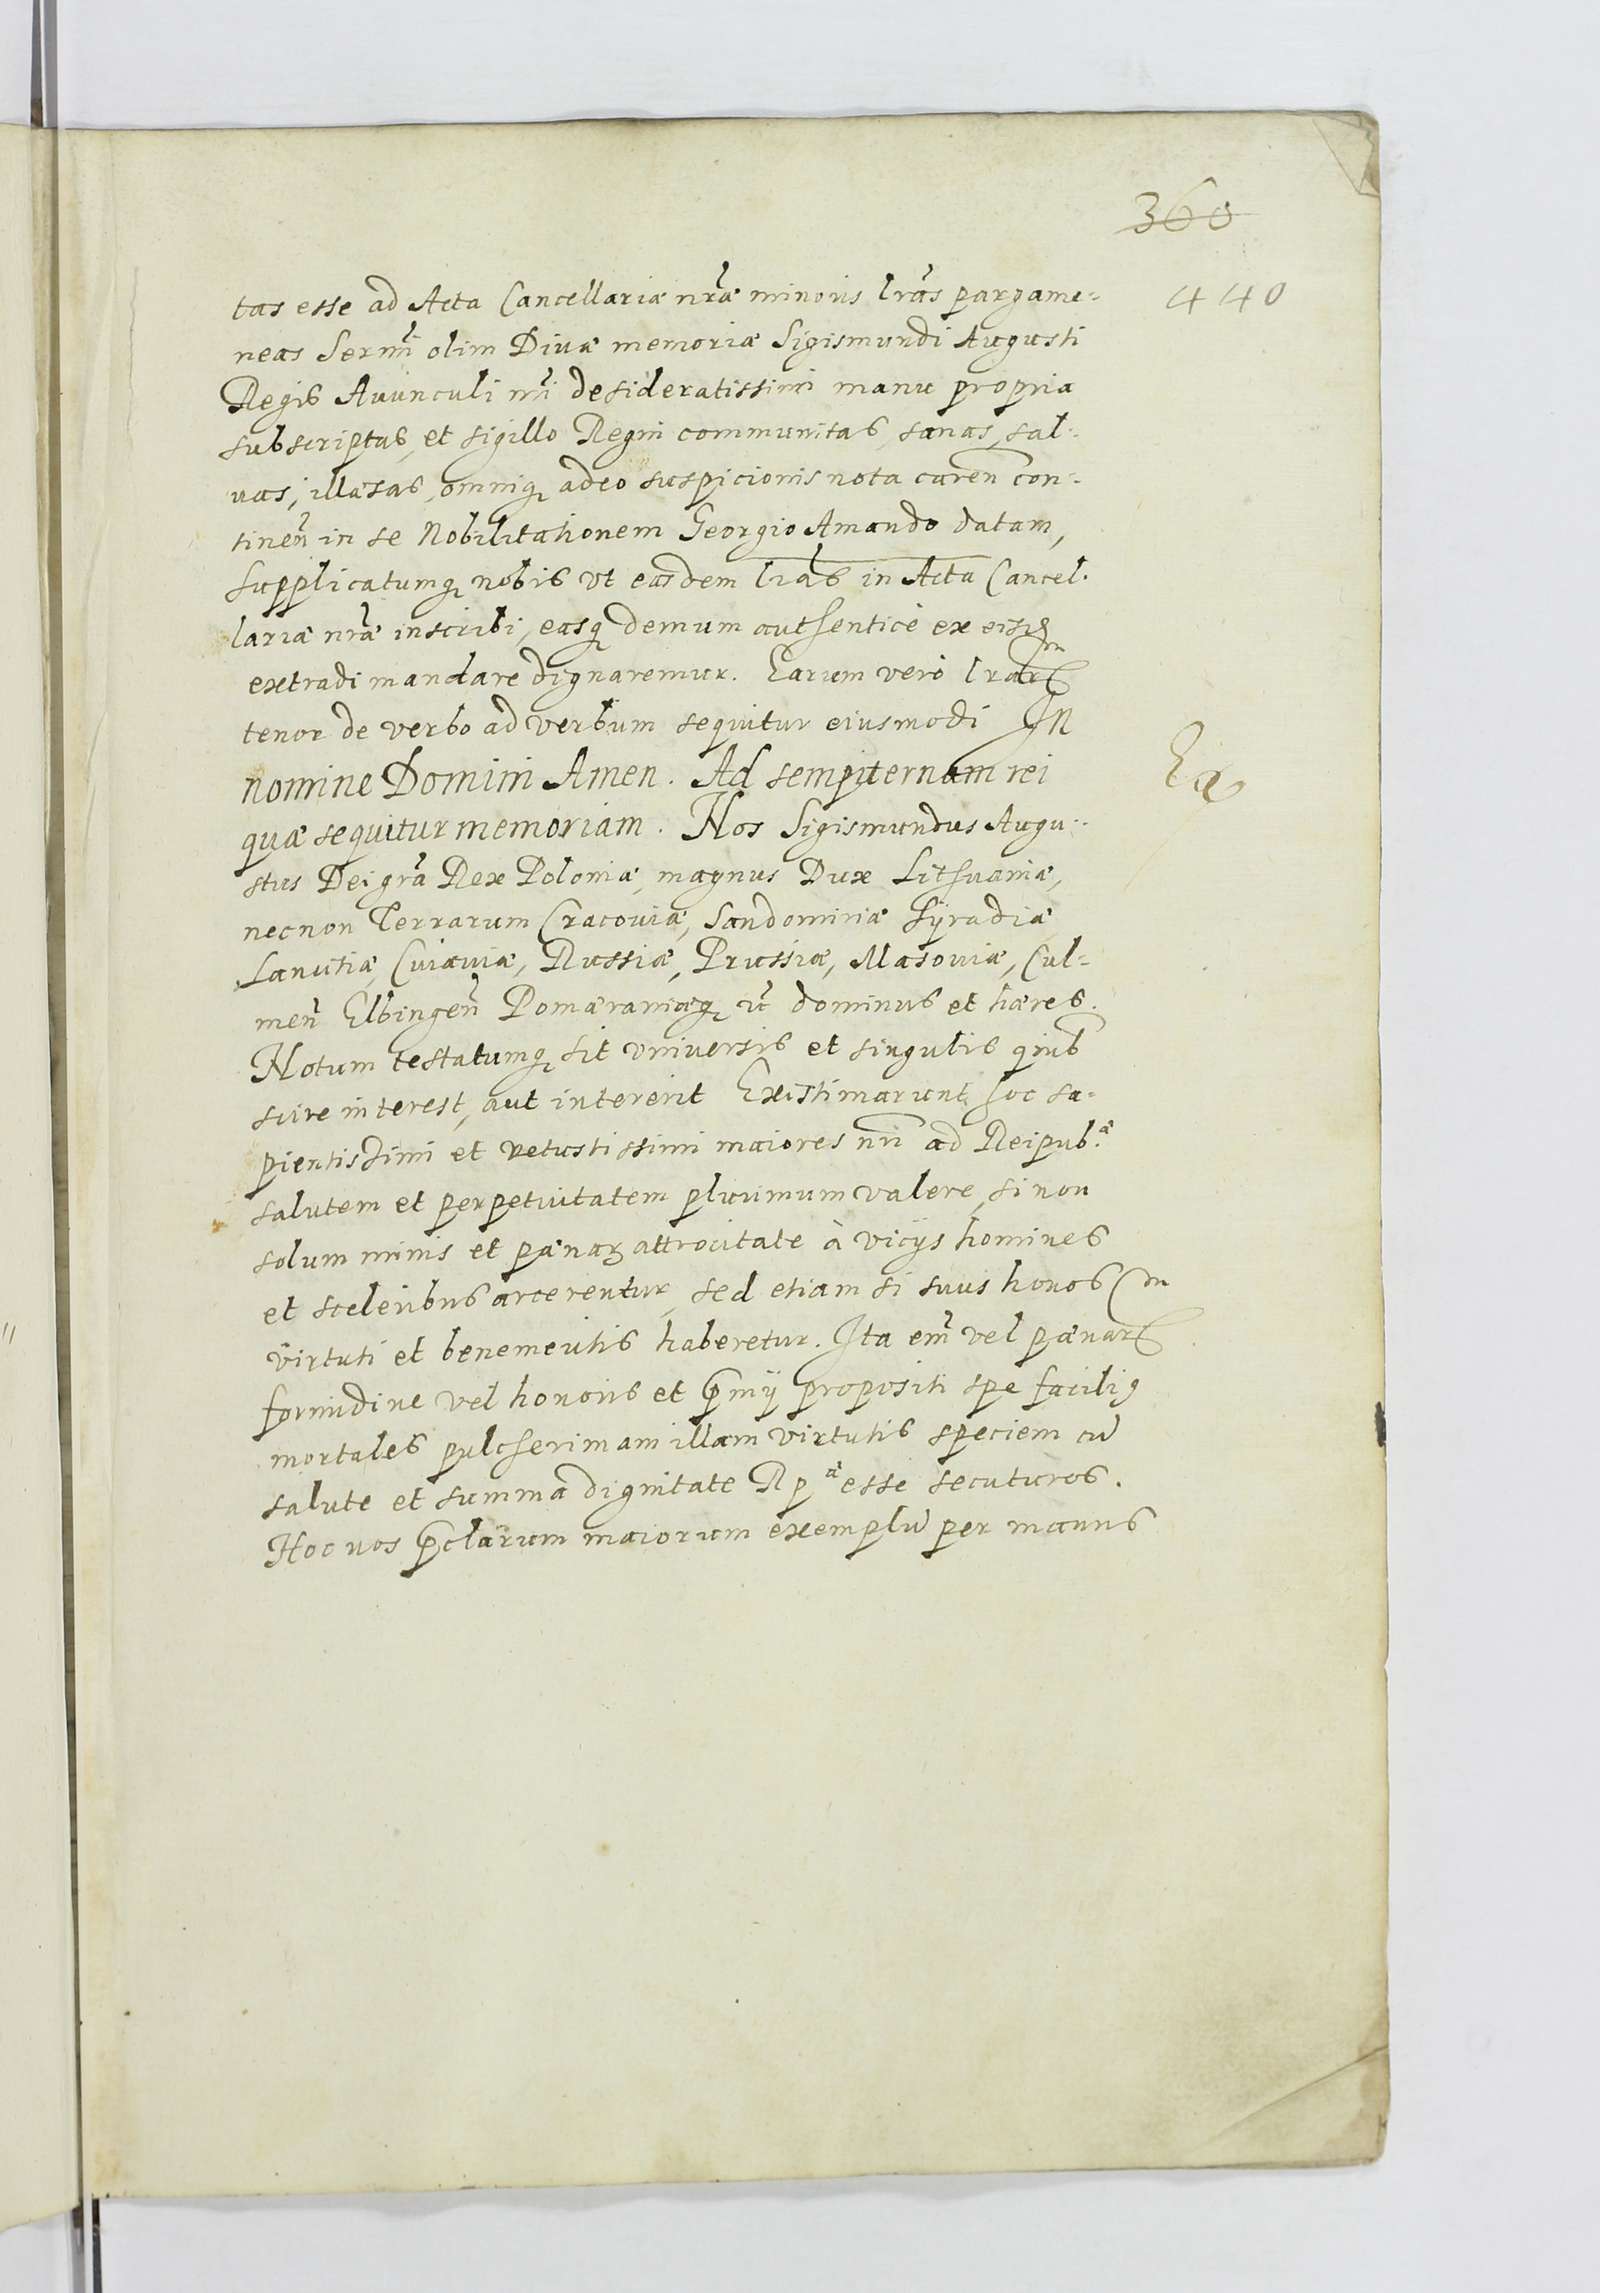 360
440
tas esse ad Acta Cancellariæ nr̃æ minoris lr̃as pargame-
neas Sermi olim Diuæ memoriæ Sigismundi Augusti
Regis Auunculi nr̃i desideratissimi manu propria
subscriptas, et sigillo Regni communitas, sanas, sal-
uas, illæsas, omniq, adeo suspicionis nota caren̄ con-
tinen̄ in se Nobilitationem Georgio Amando datam,
supplicatumq, nobis vt easdem lr̃as in Acta Cancel-
lariæ nr̃æ inscribi, easq, demum authenticè ex eisdem
extradi mandare dignaremur. Earum verò lrarum
tenor de verbo ad verbum sequitur eiusmodi In
nomine Domini Amen. Ad sempiternam rei
quæ sequitur memoriam. Nos Sigismundus Augu-
stus Dei gr̃a Rex Poloniæ, magnus Dux Lithuaniæ,
necnon Terrarum Cracouiæ, Sandomiriæ Syradiæ
Lancitiæ, Cuiauiæ, Russiæ, Prussiæ, Masouiæ, Cul-
men̄ Elbingen̄ Pomæraniæq, dominus et hæres.
Notum testatumq, sit vniuersis et singulis quib
scire interest, aut intererit Existimarunt hoc sa-
pientissimi et vetustissimi maiores nr̃i ad Reipub.æ
salutem et perpetuitatem plurimum valere, si non
solum minis et pænaꝝ attrocitate à vicijs homines
et sceleribus arcerentur, sed etiam si suus honos
virtuti et benemeritis haberetur. Ita em̄ vel pænarum
formidine vel honoris et p̄mij propositi spe facilig
mortales pulcherimam illam virtutis speciem cū
salute et summa dignitate Rp æ esse secuturos.
Hoc nos p̄clarum maiorum exemplū per manus